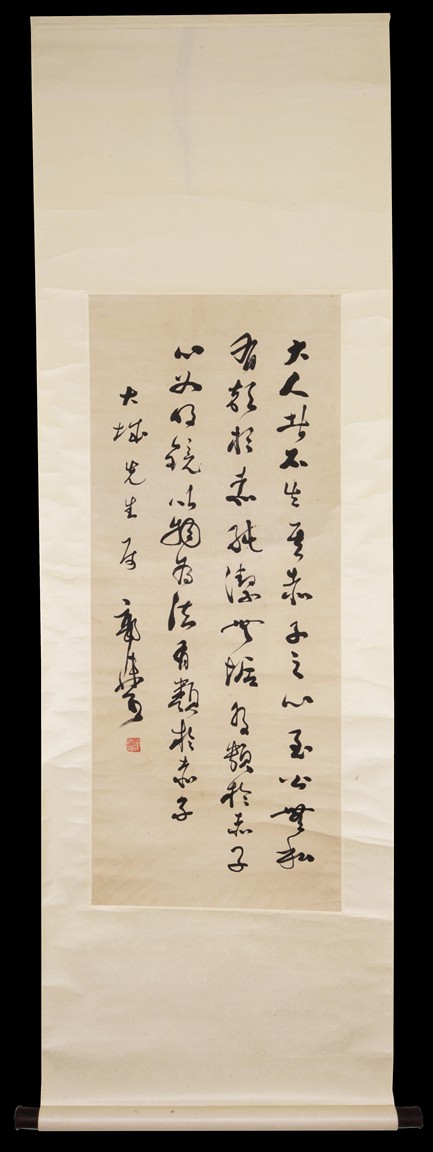 大人者不失其赤子之心至公無私
有類於赤純潔無垢有類於赤子
心如明鏡以物為法有類於赤子
大城先生屬 郭沫若